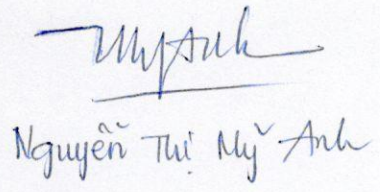 MyAnh
Nguyễn Thị Mỹ Anh